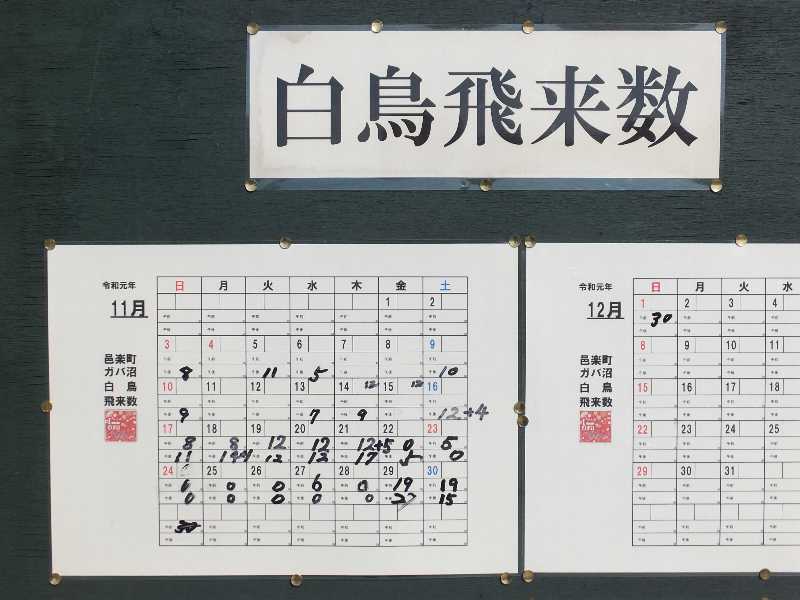 白鳥飛来数
令和元年
11月
邑楽町
ガバ沼
白鳥
飛来数
日 月 火 水 木 金 土
1 2
3 4 5 6 7 8 9
8 11 5 10
10 11 12 13 14 12 15 12 16
9 7 9 12+4
17 18 19 20 21 22 23
午前 8 8 12 12 12+5 0 5
午後 11 12 12 17 5 0
24 25 26 27 28 29 30
午前 0 0 6 0 19 19
午後 0 0 0 0 0 15
午前 30
午後
令和元年
12月
邑楽町
ガバ沼
白鳥
飛来数
日 月 火 水
1 2 3 4
午前 30
午後
8 9 10 11
15 16 17 18
22 23 24 25
29 30 31